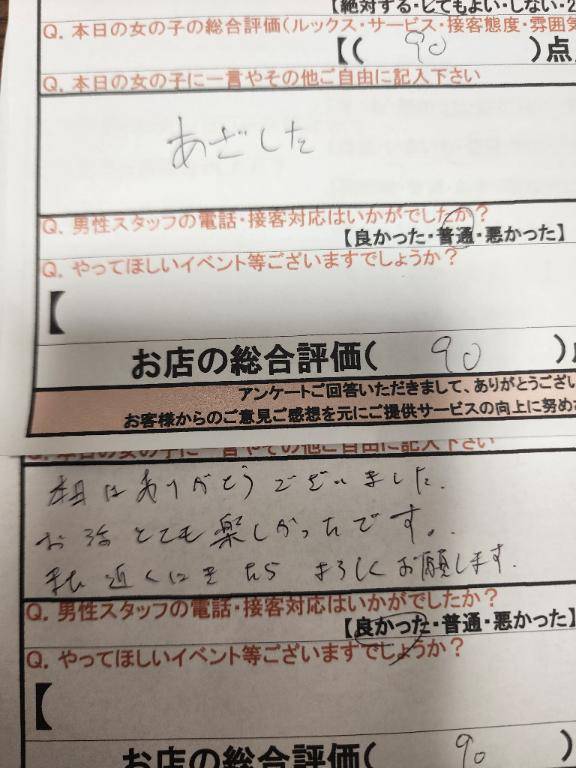 【絶対する・してもよい・しない・2
Q. 本日の女の子の総合評価(ルックス・サービス・接客態度・雰囲気
【( 90 )点
Q. 本日の女の子に一言やその他ご自由に記入下さい
あざした
Q. 男性スタッフの電話・接客対応はいかがでしたか?
【良かった・普通・悪かった】
Q. やってほしいイベント等ございますでしょうか?
【
お店の総合評価( 90 )
アンケートご回答いただきまして、ありがとうござい
お客様からのご意見ご感想を元にご提供サービスの向上に努め
Q. 本日の女の子に一言やその他ご自由に記入下さい
本日はありがとうございました.
お話とても楽しかったです。
また近くにきたらよろしくお願いします.
Q. 男性スタッフの電話・接客対応はいかがでしたか?
【良かった・普通・悪かった】
Q. やってほしいイベント等ございますでしょうか?
【
お店の総合評価( 90 )